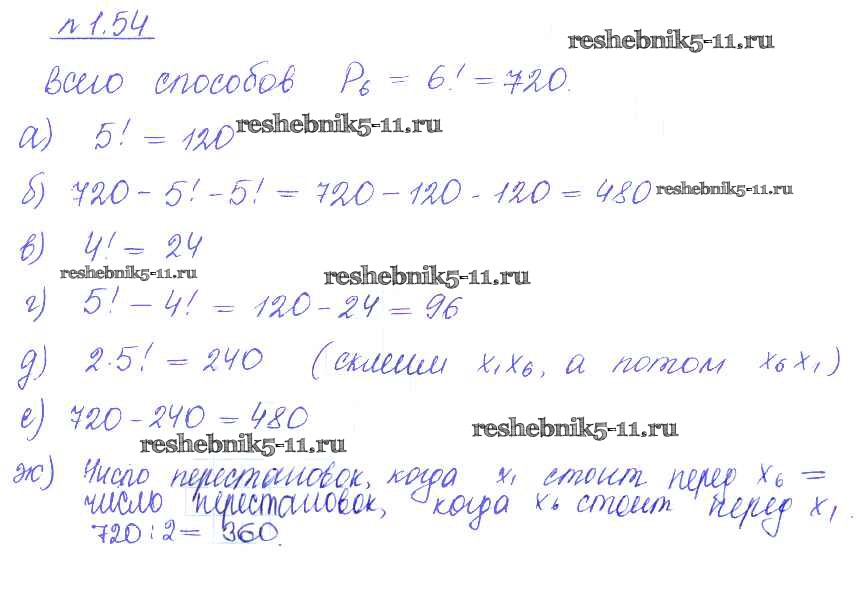 № 1.54
reshebnik5-11.ru
Всего способов P₆ = 6! = 720.
а) 5! = 120 reshebnik5-11.ru
б) 720 - 5! - 5! = 720 - 120 - 120 = 480 reshebnik5-11.ru
в) 4! = 24
reshebnik5-11.ru reshebnik5-11.ru
г) 5! - 4! = 120 - 24 = 96
д) 2·5! = 240 (склеим x₁x₆, а потом x₆x₁)
е) 720 - 240 = 480
reshebnik5-11.ru reshebnik5-11.ru
ж) Число перестановок, когда x₁ стоит перед x₆ =
число перестановок, когда x₆ стоит перед x₁.
720 : 2 = 360.